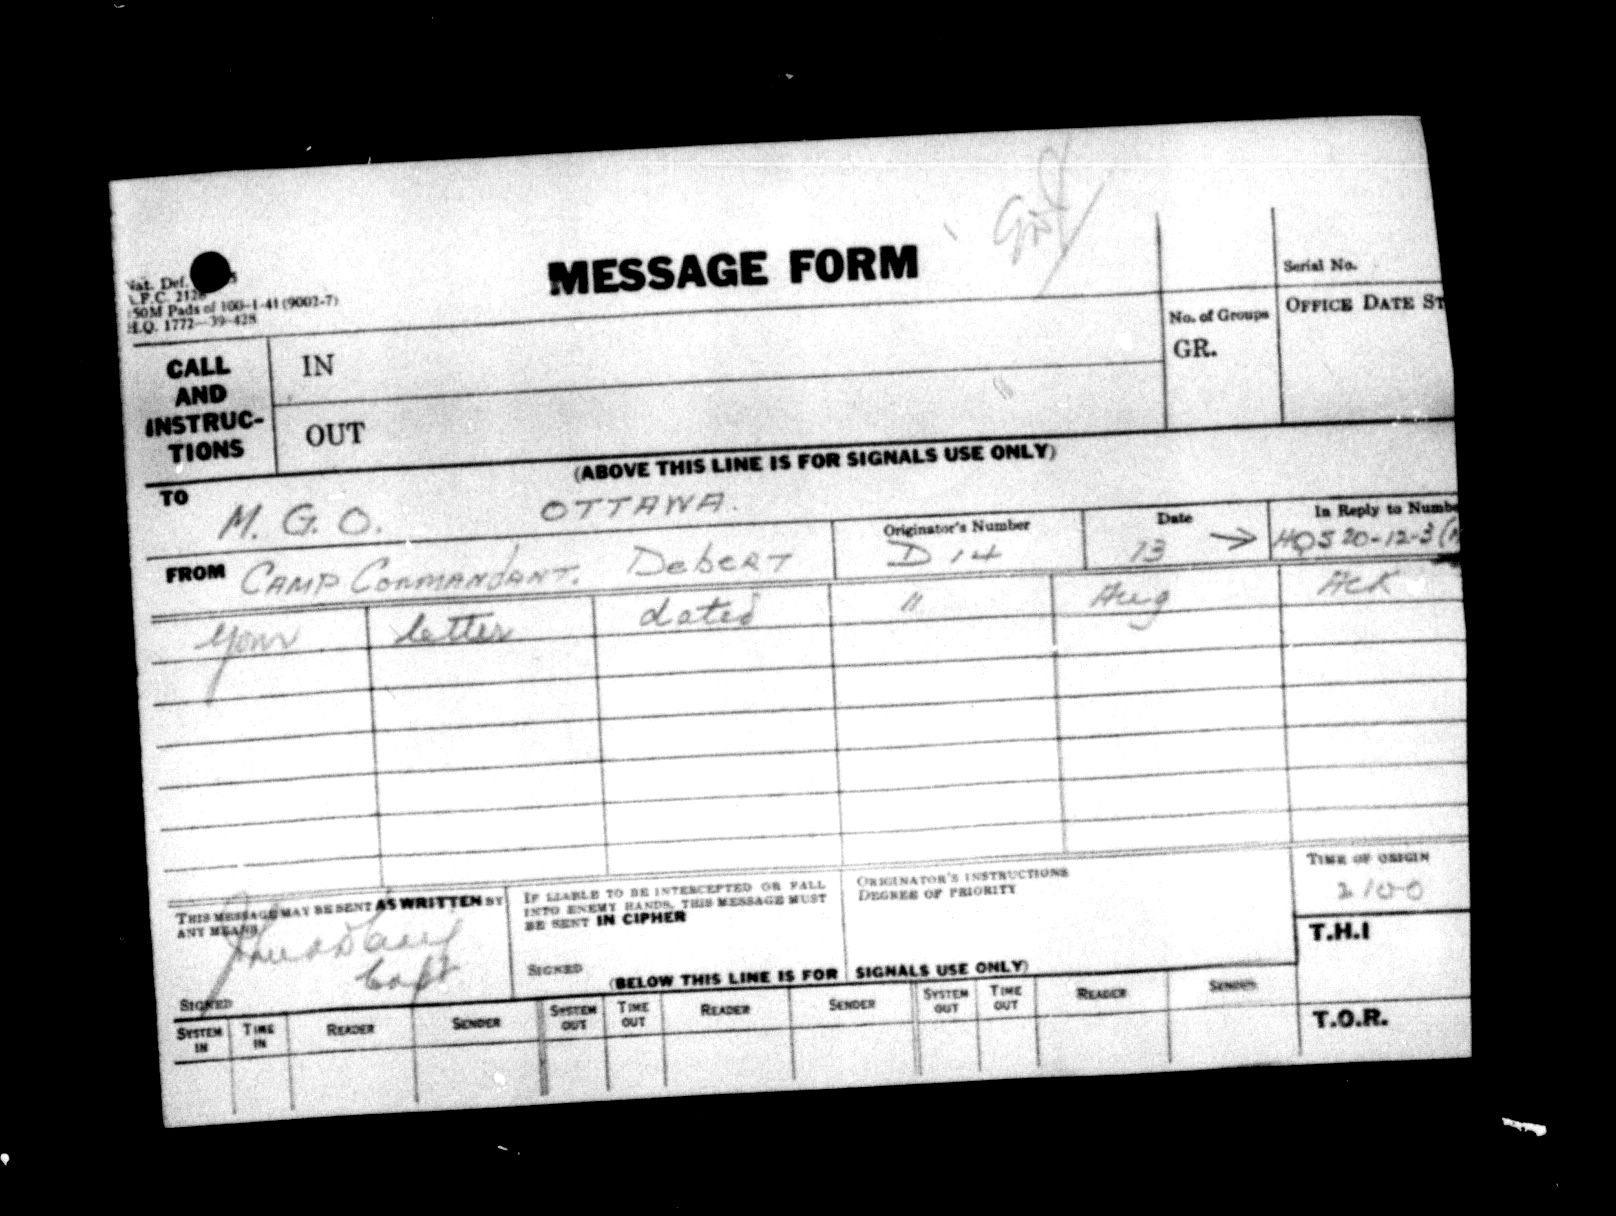 MESSAGE FORM
Nat. Def.
F.C.
50M Pads of 100-1-41 (9002-7)
H.Q. 1772-39-428
Serial No.
No. of Groups
GR.
OFFICE DATE ST
CALL AND INSTRUC-TIONS
IN
OUT
(ABOVE THIS LINE IS FOR SIGNALS USE ONLY)
TO M.G.O. OTTAWA.
FROM CAMP COMMANDANT. DEBERT
Originator's Number
D 14
Date
13 →
In Reply to Numbe
HQS 20-12-3
your letter dated 11 Aug Ack
THIS MESSAGE MAY BE SENT AS WRITTEN BY
ANY MEANS
Capt
SIGNED
IF LIABLE TO BE INTERCEPTED OR FALL
INTO ENEMY HANDS, THIS MESSAGE MUST
BE SENT IN CIPHER
SIGNED
ORIGINATOR'S INSTRUCTIONS
DEGREE OF PRIORITY
TIME OF ORIGIN
2100
T.H.I
(BELOW THIS LINE IS FOR SIGNALS USE ONLY)
SYSTEM IN TIME IN READER SENDER SYSTEM OUT TIME OUT READER SENDER SYSTEM OUT TIME OUT READER SENDER
T.O.R.